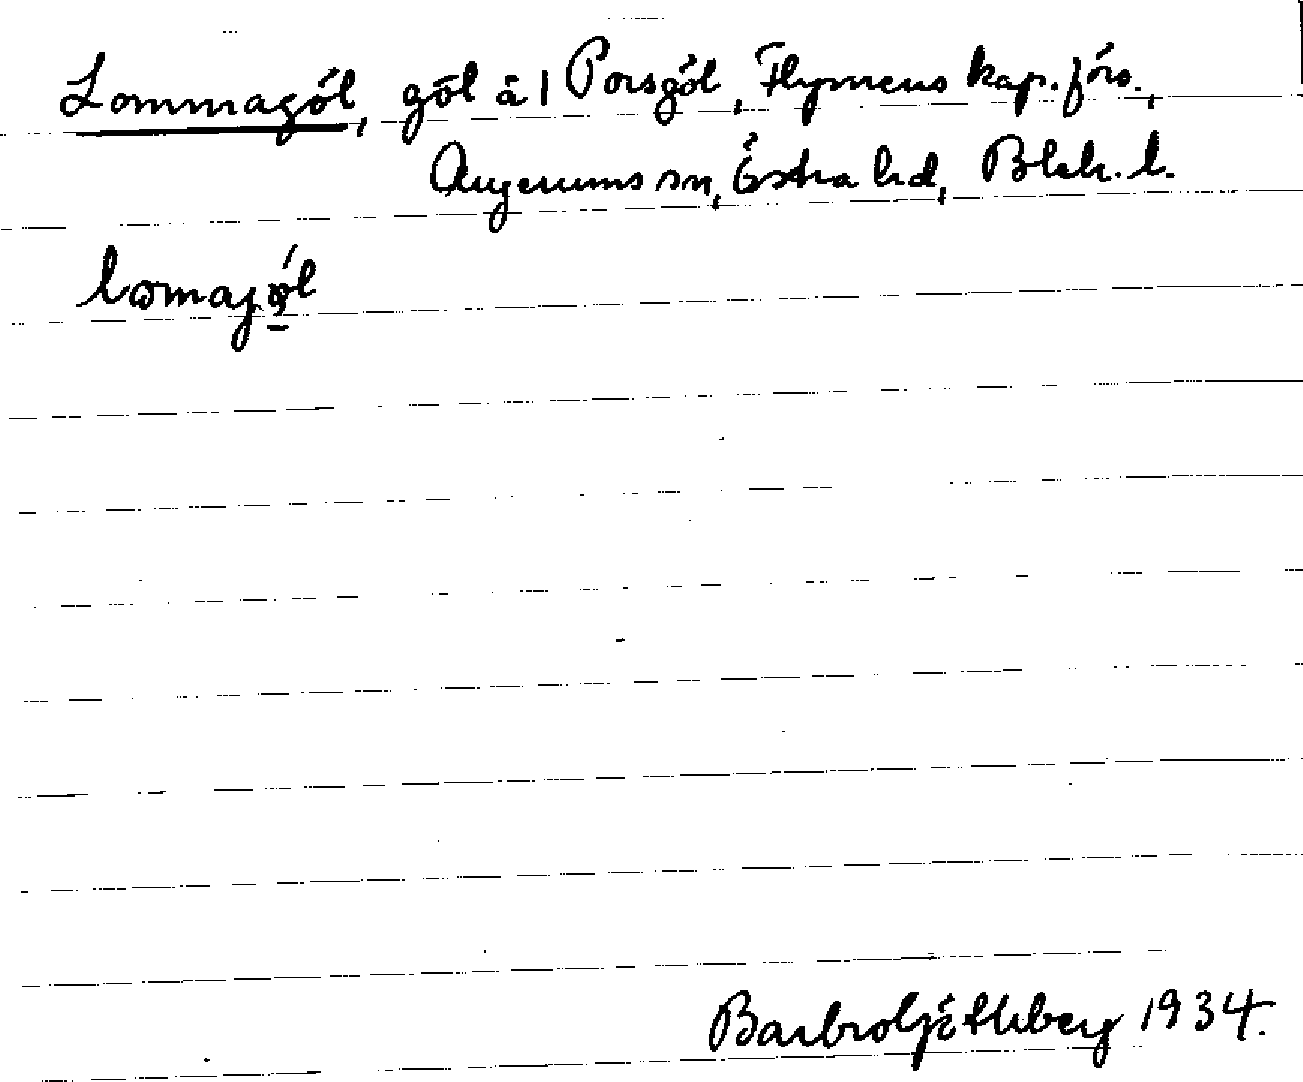 Lommagöl, göl å 1 Porsgöl, Flymens kap. förs.,
Augerums sn, Östra hd, Blek. l.
Barbro Söthberg 1934.